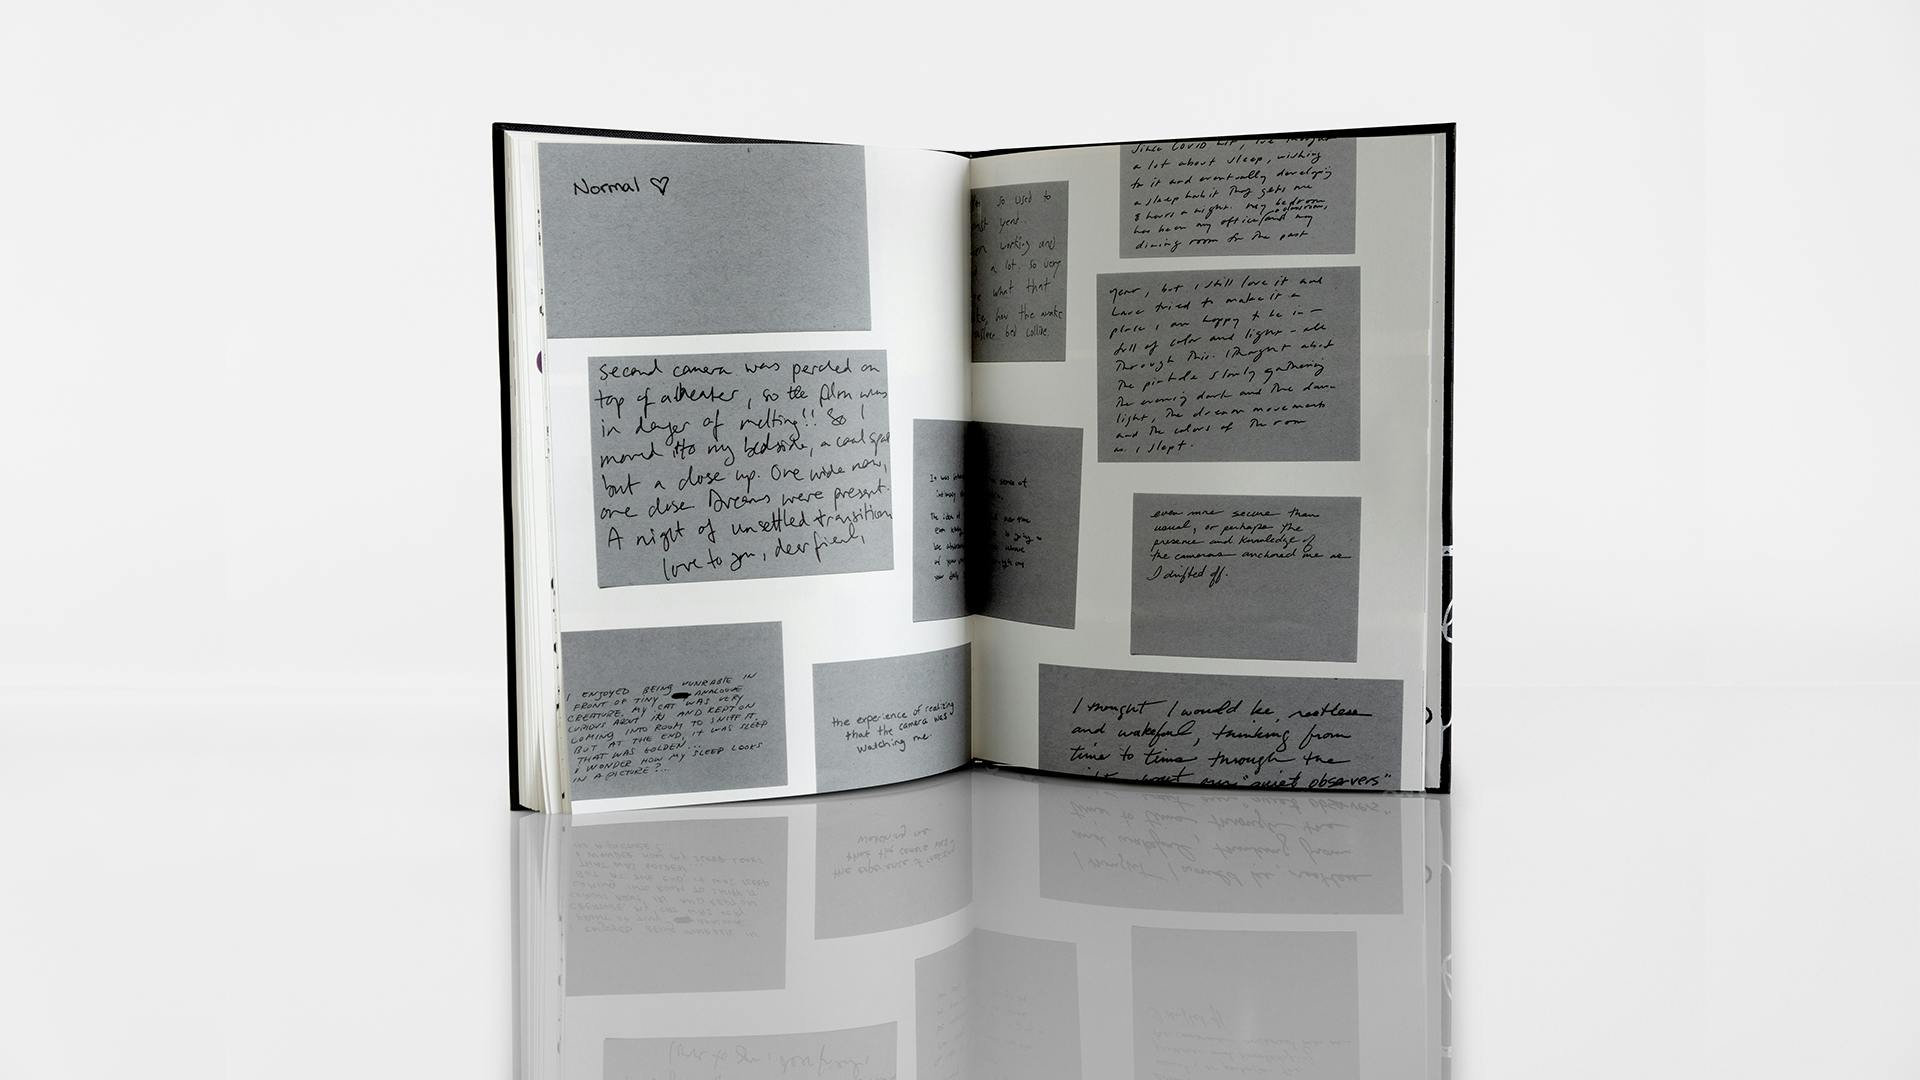 Normal ♡
second camera was perched on
top of a heater, so the film was
in danger of melting!! So I
moved it to my bedside, a cool spot
but a close up. One wide now,
one close. Dreams were present.
A night of unsettled transition
love to you, dear friend,
I ENJOYED BEING VUNRABLE IN
FRONT OF TINY ANALOGUE
CREATURE. MY CAT WAS VERY
CURIOUS ABOUT IN AND KEPT ON
COMING INTO ROOM TO SNIFF IT.
BUT AT THE END, IT WAS SLEEP
THAT WAS GOLDEN...
I WONDER HOW MY SLEEP LOOKS
IN A PICTURE?...
the experience of realizing
that the camera was
watching me.
so used to
working and
a lot. so very
what that
the wake
bed
It was
sense of
The idea of
over time
of your
your daily
Since COVID hit, I've thought
a lot about sleep, wishing
for it and eventually developing
a sleep habit that gets me
8 hours a night. My bedroom
has been my office, and my
dining room for the past
year, but I still love it and
have tried to make it a
place I am happy to be in —
full of color and light — all
through this. I thought about
the pinhole slowly gathering
the evening dark and the dawn
light, the dream movements
and the colors of the room
as I slept.
even more secure than
usual, or perhaps the
presence and knowledge of
the cameras anchored me as
I drifted off.
I thought I would be restless
and wakeful, thinking from
time to time through the
about our "quiet observers"